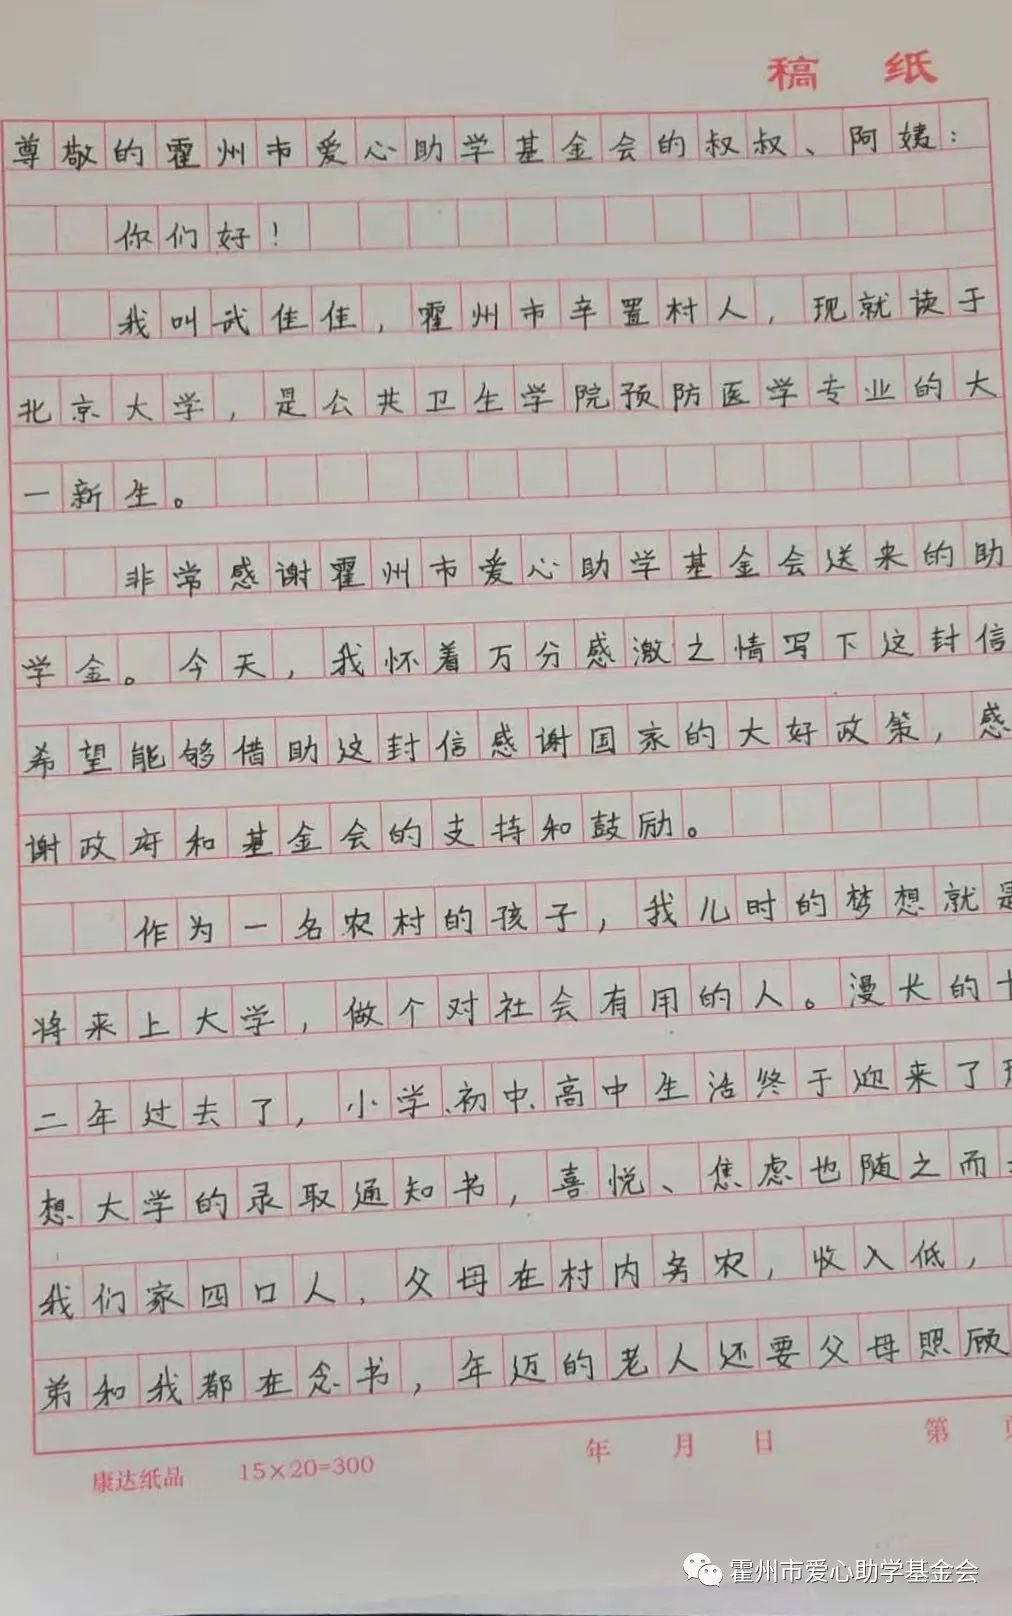 稿 纸
尊敬的霍州市爱心助学基金会的叔叔、阿姨：
你们好！
我叫武佳佳，霍州市辛置村人，现就读于
北京大学，是公共卫生学院预防医学专业的大
一新生。
非常感谢霍州市爱心助学基金会送来的助
学金。今天，我怀着万分感激之情写下这封信
希望能够借助这封信感谢国家的大好政策，感
谢政府和基金会的支持和鼓励。
作为一名农村的孩子，我儿时的梦想就是
将来上大学，做个对社会有用的人。漫长的十
二年过去了，小学、初中、高中生活终于迎来了
想大学的录取通知书，喜悦、焦虑也随之而
我们家四口人，父母在村内务农，收入低，
弟和我都在念书，年迈的老人还要父母照顾
康达纸品 15×20=300 年 月 日 第
霍州市爱心助学基金会